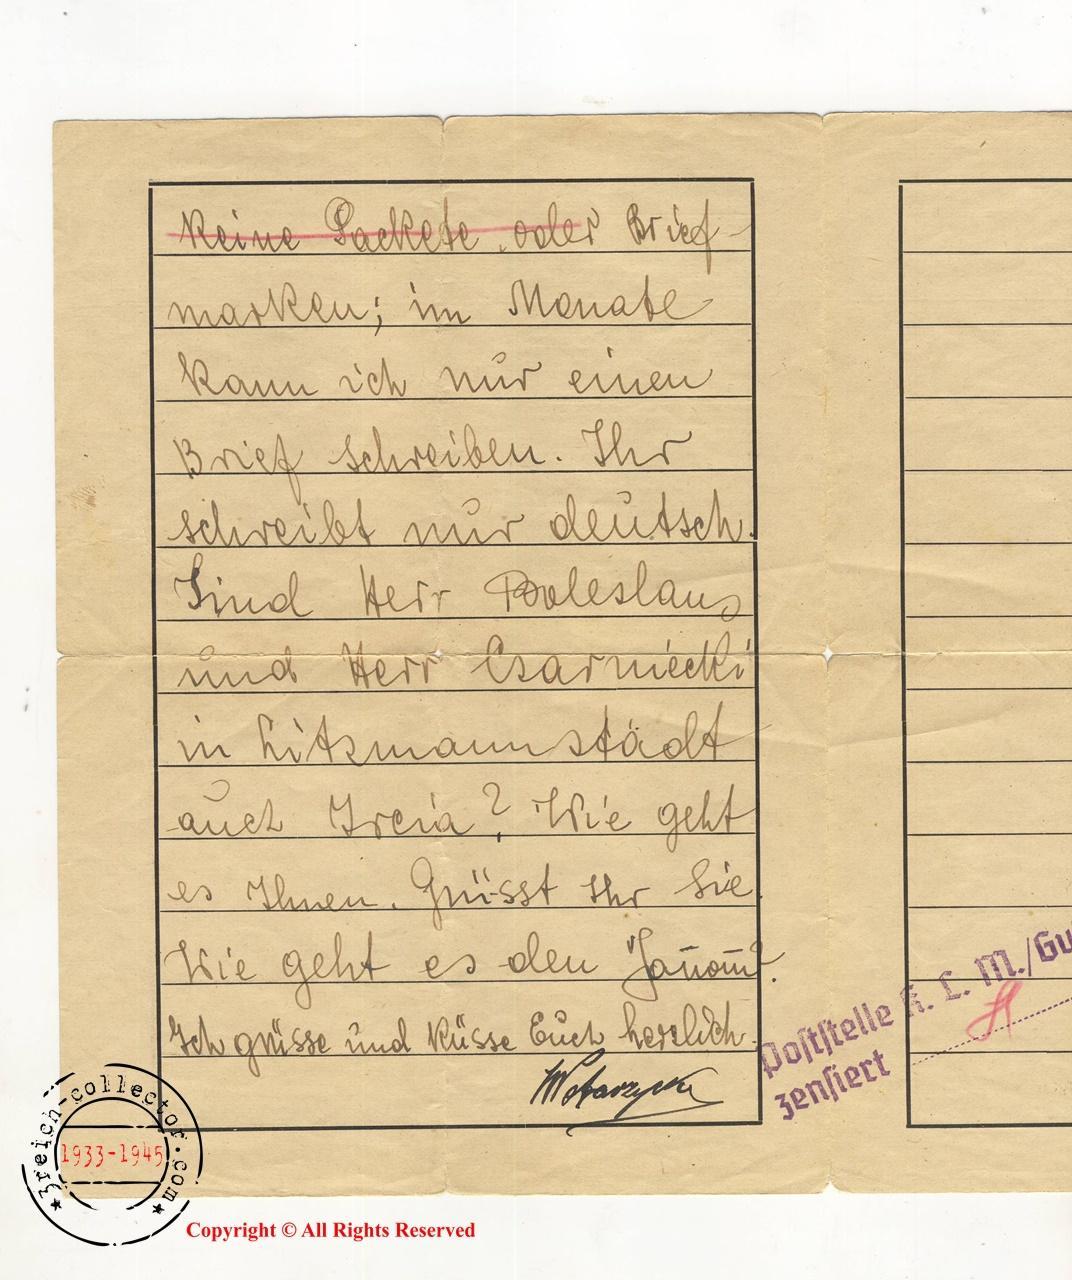 keine Packete oder Brief-
marken; im Monate
kann ich nur einen
Brief schreiben. Ihr
schreibt nur deutsch.
Sind Herr Boleslaus
und Herr Czarniecki
in Litzmannstädt
auch Ircia? Wie geht
es Ihnen. Grüsst Ihr Sie.
Wie geht es den
Ich grüsse und küsse Euch herzlich.
Poststelle K. L. M./Gu
zensiert
3reich-collector.com
1933-1945
Copyright © All Rights Reserved